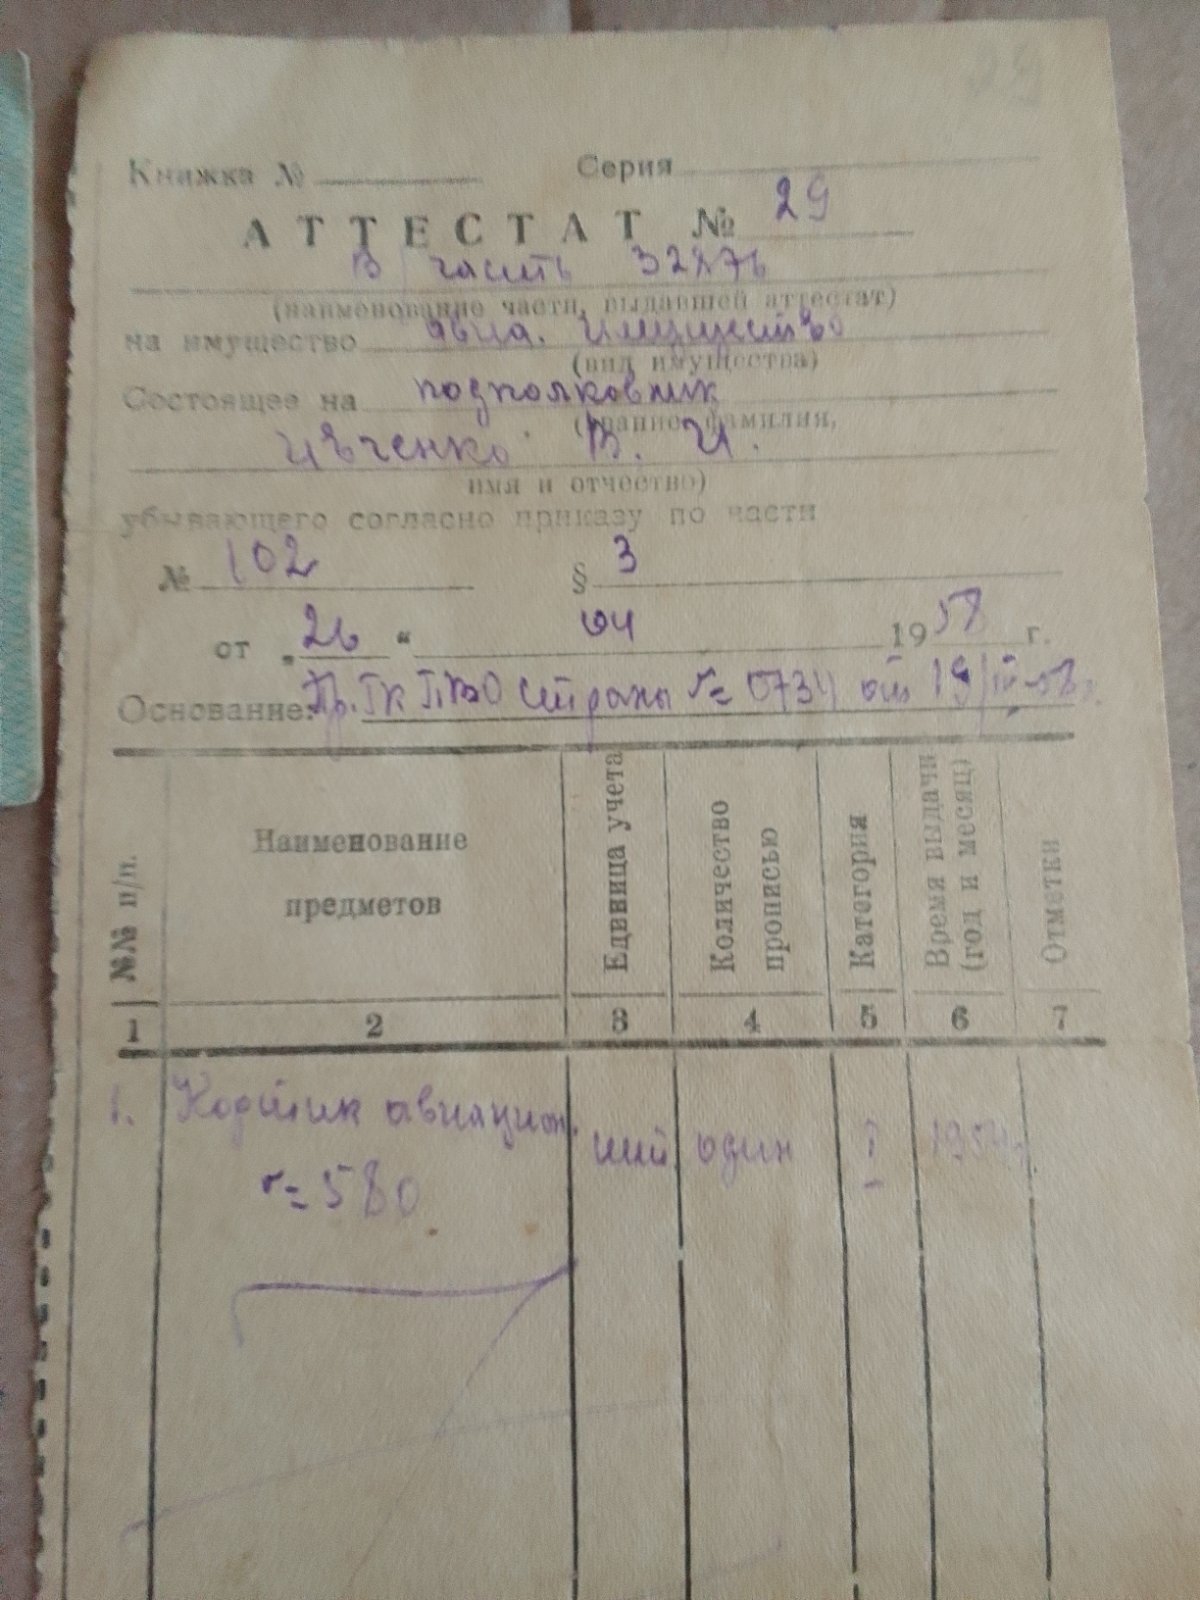 29
Книжка № Серия
АТТЕСТАТ № 29
В/часть 32276
(наименование части, выдавшей аттестат)
на имущество авиа. имущество
(вид имущества)
Состоящее на подполковник
(звание фамилия,
Ивченко В. И.
имя и отчество)
убывающего согласно приказу по части
№ 102 § 3
от „26“ 04 1958 г.
Основание: Пр. ГК ПВО Страны № 0734 от 19/III-58г.
№№ п/п. Наименование предметов Единица учета Количество прописью Категория Время выдачи (год и месяц) Отметки
1 2 3 4 5 6 7
1. Кортик авиацион. один I 1954г.
№ 580